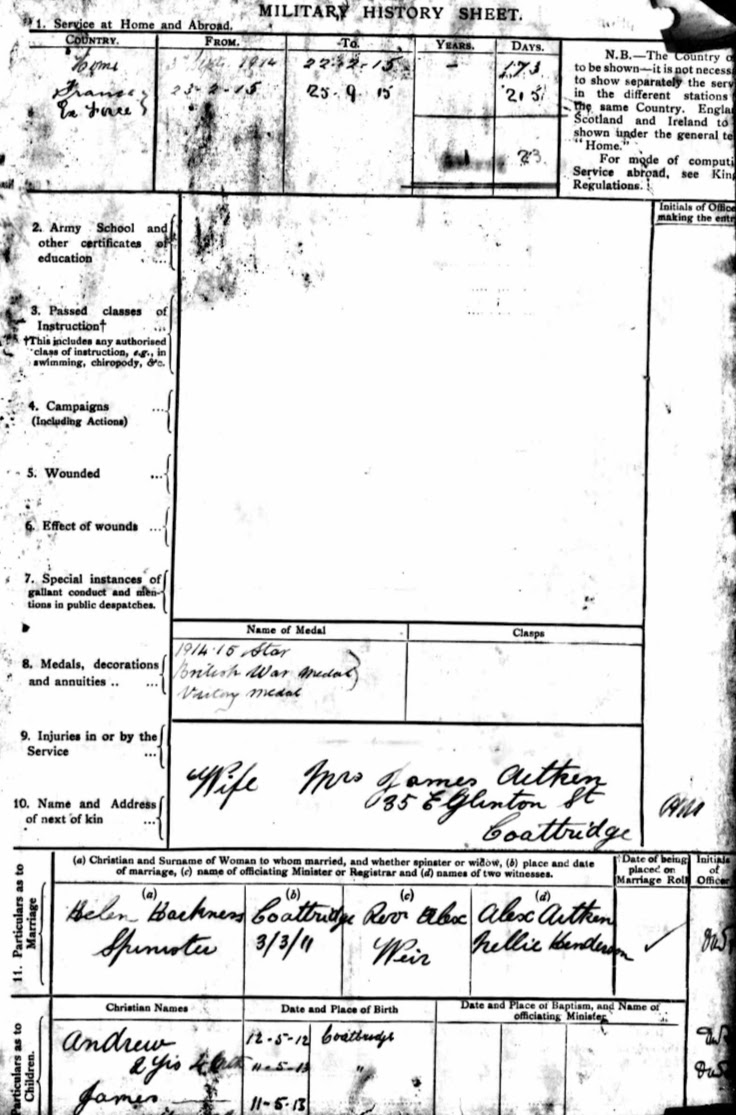 MILITARY HISTORY SHEET.
1. Service at Home and Abroad.
COUNTRY. FROM. To. YEARS. DAYS.
Home 3 Sept. 1914 22-2-15 - 173
France 23-2-15 25-9-15 215
Ex Force
23
N.B.—The Country
to be shown—it is not necess
to show separately the serv
in the different stations
the same Country. Engla
Scotland and Ireland to
shown under the general te
"Home."
For mode of computi
Service abroad, see Kin
Regulations.
Initials of Office
making the entr
2. Army School and
other certificates of
education
3. Passed classes of
Instruction† ...
†This includes any authorised
class of instruction, e.g., in
swimming, chiropody, &c.
4. Campaigns ...
(Including Actions)
5. Wounded ...
6. Effect of wounds ...
7. Special instances of
gallant conduct and men-
tions in public despatches.
Name of Medal Clasps
8. Medals, decorations
and annuities .. ...
1914-15 Star
British War Medal
Victory Medal
9. Injuries in or by the
Service ...
10. Name and Address
of next of kin ...
Wife Mrs James Aitken
35 Eglinton St
Coatbridge
11. Particulars as to
Marriage
(a) Christian and Surname of Woman to whom married, and whether spinster or widow, (b) place and date
of marriage, (c) name of officiating Minister or Registrar and (d) names of two witnesses.
Date of being
placed on
Marriage Roll
Initials
of
Officer
(a) (b) (c) (d)
Helen Harkness Coatbridge Revr Alex Alex Aitken
Spinster 3/3/11 Weir Nellie Henderson
Particulars as to
Children.
Christian Names Date and Place of Birth Date and Place of Baptism, and Name of
officiating Minister
Andrew 12-5-12 Coatbridge
11-5-13 "
James 11-5-13